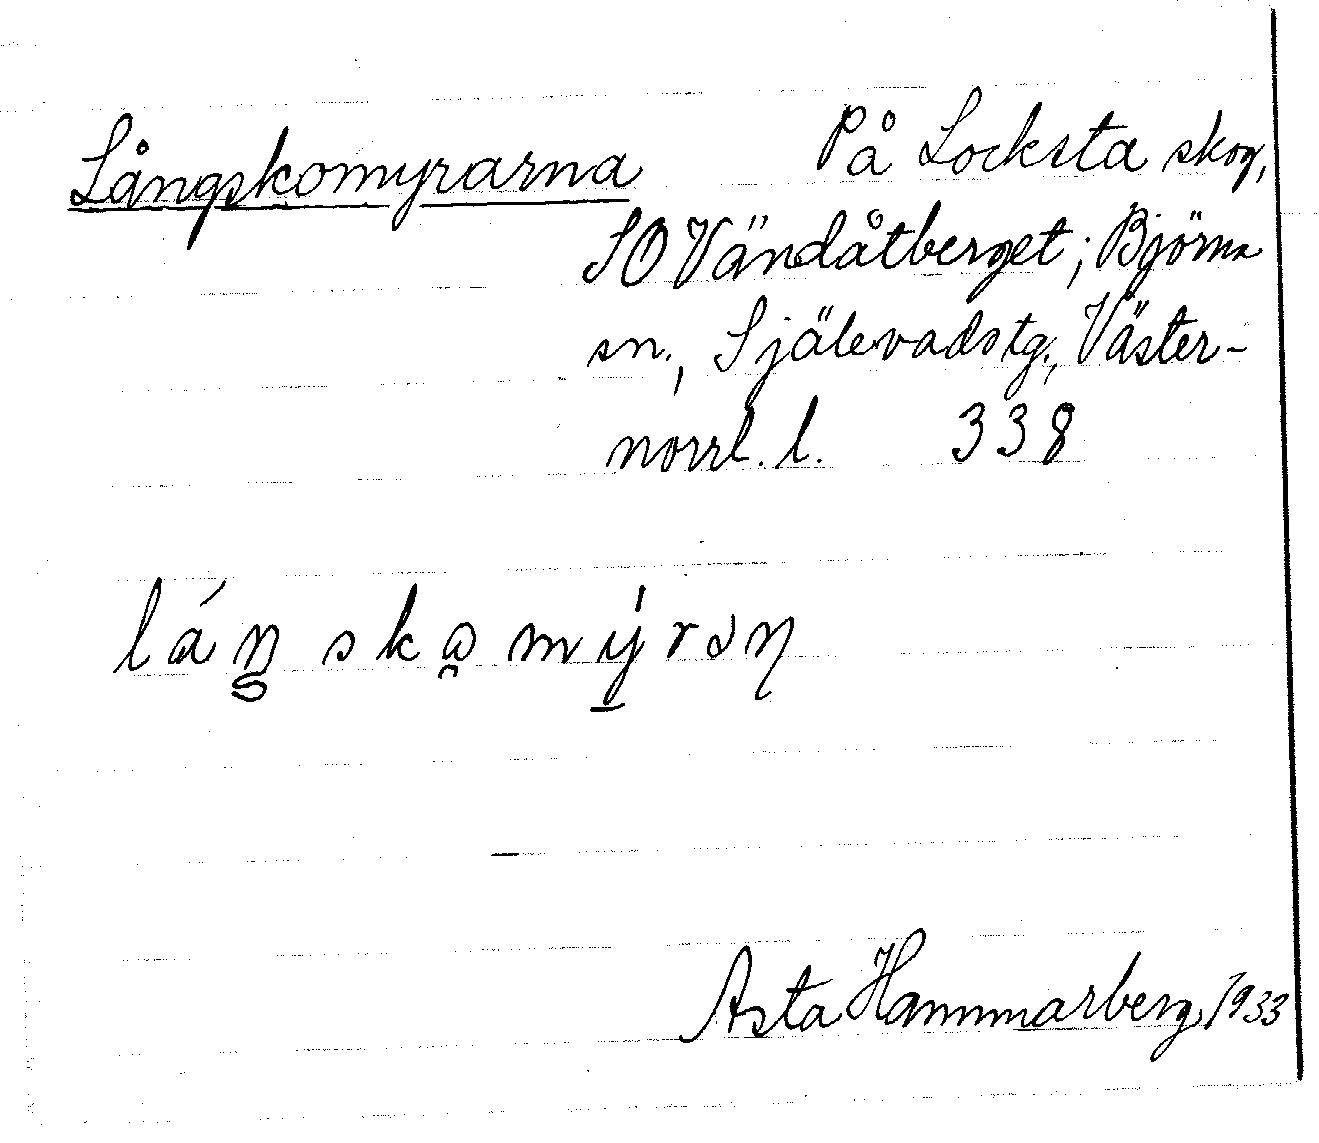 Långskomyrarna På Locksta skog,
SO Vändåtberget; Björna
sn., Själevadstg., Väster-
norrl. l. 338
láŋskɷmý̱rəɳ
Asta Hammarberg, 1933